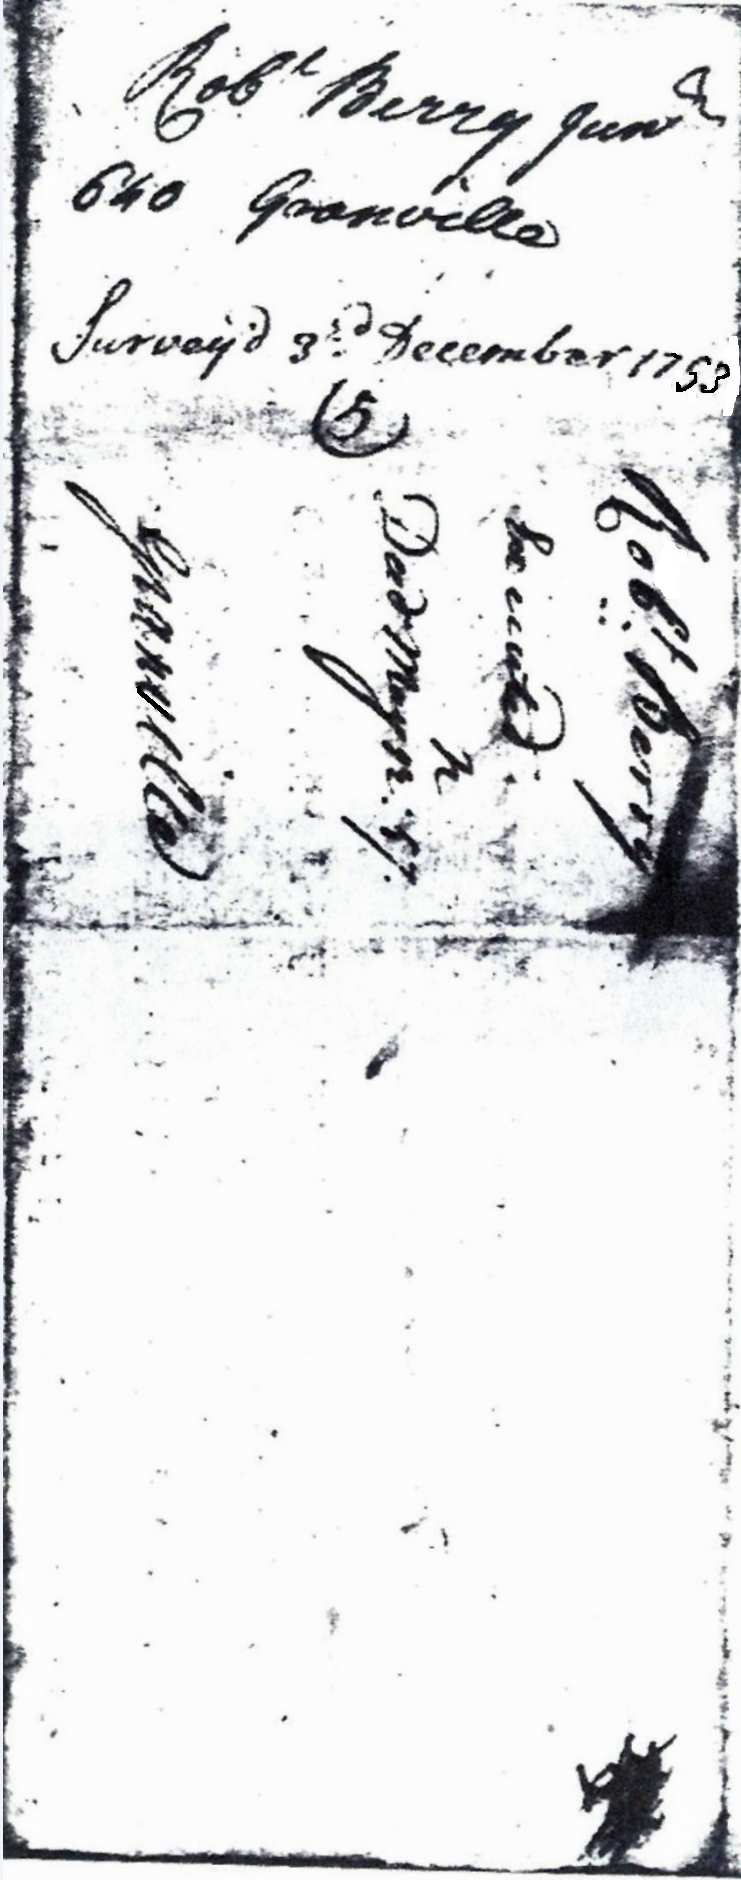 Robt Berry Junr
640 Granville
Survey'd 3rd December 1753
(5)
Robt Berry
Executed
Granville